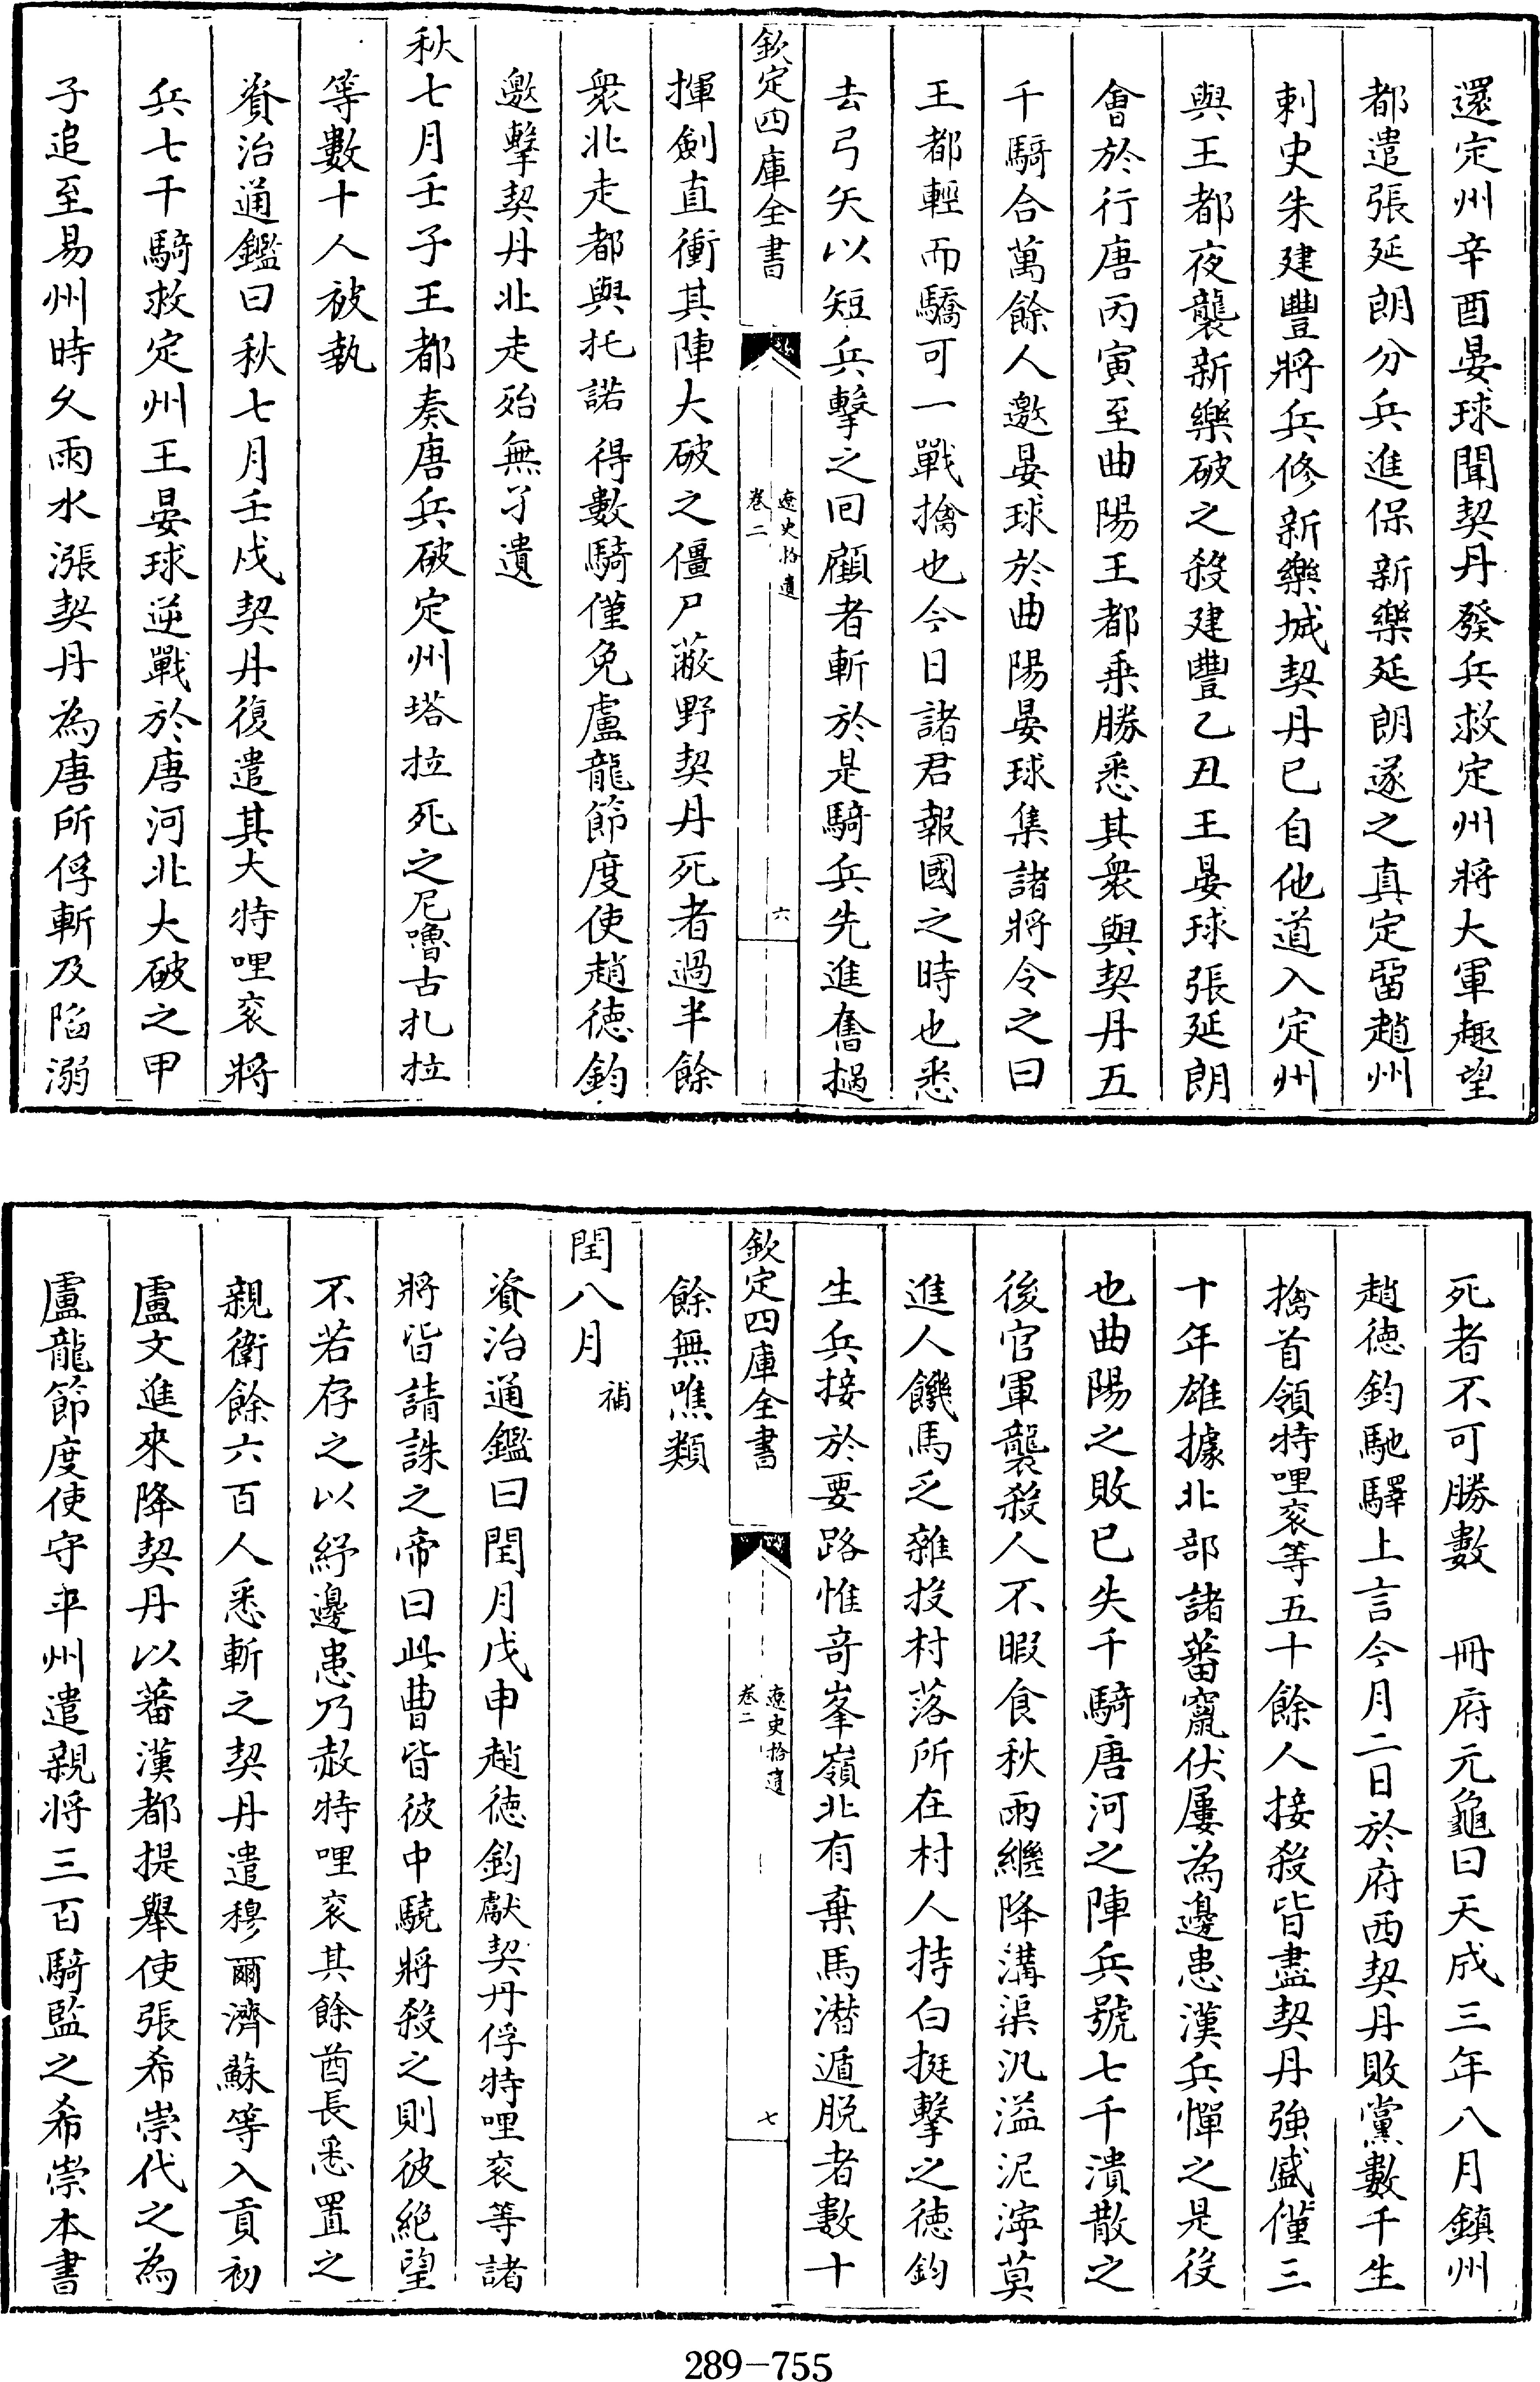 還定州辛酉晏球聞契丹發兵救定州將大軍趣望
都遣張延朗分兵進保新樂延朗遂之真定留趙州
刺史朱建豐將兵修新樂城契丹已自他道入定州
與王都夜襲新樂破之殺建豐乙丑王晏球張延朗
會於行唐丙寅至曲陽王都乗勝悉其衆與契丹五
千騎合萬餘人邀晏球於曲陽晏球集諸將令之曰
王都輕而驕可一戰擒也今日諸君報國之時也悉
去弓矢以短兵擊之回顧者斬於是騎兵先進奮撾
欽定四庫全書
遼史拾遺
卷二
六
揮劍直衝其陣大破之僵尸蔽野契丹死者過半餘
衆北走都與托諾得數騎僅免盧龍節度使趙德鈞
邀擊契丹北走殆無孑遺
秋七月壬子王都奏唐兵破定州塔拉死之尼嚕古扎拉
等數十人被執
資治通鑑曰秋七月壬戌契丹復遣其大特哩衮將
兵七千騎救定州王晏球逆戰於唐河北大破之甲
子追至易州時久雨水漲契丹為唐所俘斬及陷溺
死者不可勝數　冊府元龜曰天成三年八月鎮州
趙德鈞馳驛上言今月二日於府西契丹敗黨數千生
擒首領特哩衮等五十餘人接殺皆盡契丹強盛僅三
十年雄據北部諸蕃竄伏屢為邊患漢兵憚之是後
也曲陽之敗已失千騎唐河之陣兵號七千潰散之
後官軍襲殺人不暇食秋雨繼降溝渠汎溢泥濘莫
進人饑馬乏雜投村落所在村人持白挺擊之德鈞
生兵接於要路惟奇峯嶺北有棄馬潛遁脱者數十
欽定四庫全書
遼史拾遺
卷二
七
餘無噍類
閏八月補
資治通鑑曰閏月戊申趙德鈞獻契丹俘特哩衮等諸
將皆請誅之帝曰此曹皆彼中驍將殺之則彼絕望
不若存之以紓邊患乃赦特哩衮其餘酋長悉置之
親衛餘六百人悉斬之契丹遣穆爾濟蘇等入貢初
盧文進來降契丹以蕃漢都提舉使張希崇代之為
盧龍節度使守平州遣親將三百騎監之希崇本書
289-755